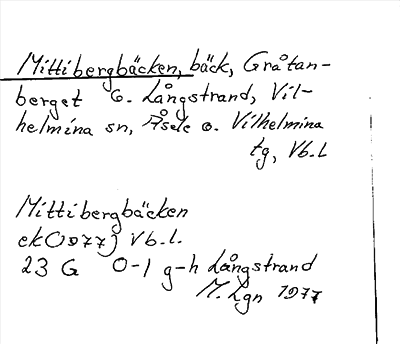 Mittibergbäcken, bäck, Gråtan-
berget G. Långstrand, Vil-
helmina sn, Åsele o. Vilhelmina
tg, Vb.L
Mittibergbäcken
ek(1977) Vb.l.
23 G 0-1 g-h Långstrand
M. Lgn 1977